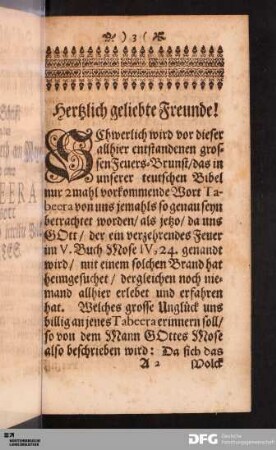 ) 3 (
Hertzlich geliebte Freunde!
SChwerlich wird vor dieser
allhier entstandenen gros-
sen Feuers-Brunst/das in
unserer teutschen Bibel
nur 2 mahl vorkommende Wort Ta-
beera von uns jemahls so genau seyn
betrachtet worden/ als jetzo/ da uns
GOtt/ der ein verzehrendes Feuer
im V. Buch Mose IV, 24. genandt
wird/ mit einem solchen Brand hat
heimgesuchet/ dergleichen noch nie-
mand allhier erlebet und erfahren
hat. Welches grosse Unglück uns
billig an jenes Tabeera erinnern soll/
so von dem Mann GOttes Mose
also beschrieben wird: Da sich das
A 2 Volck
DFG
Deutsche
Forschungsgemeinschaft